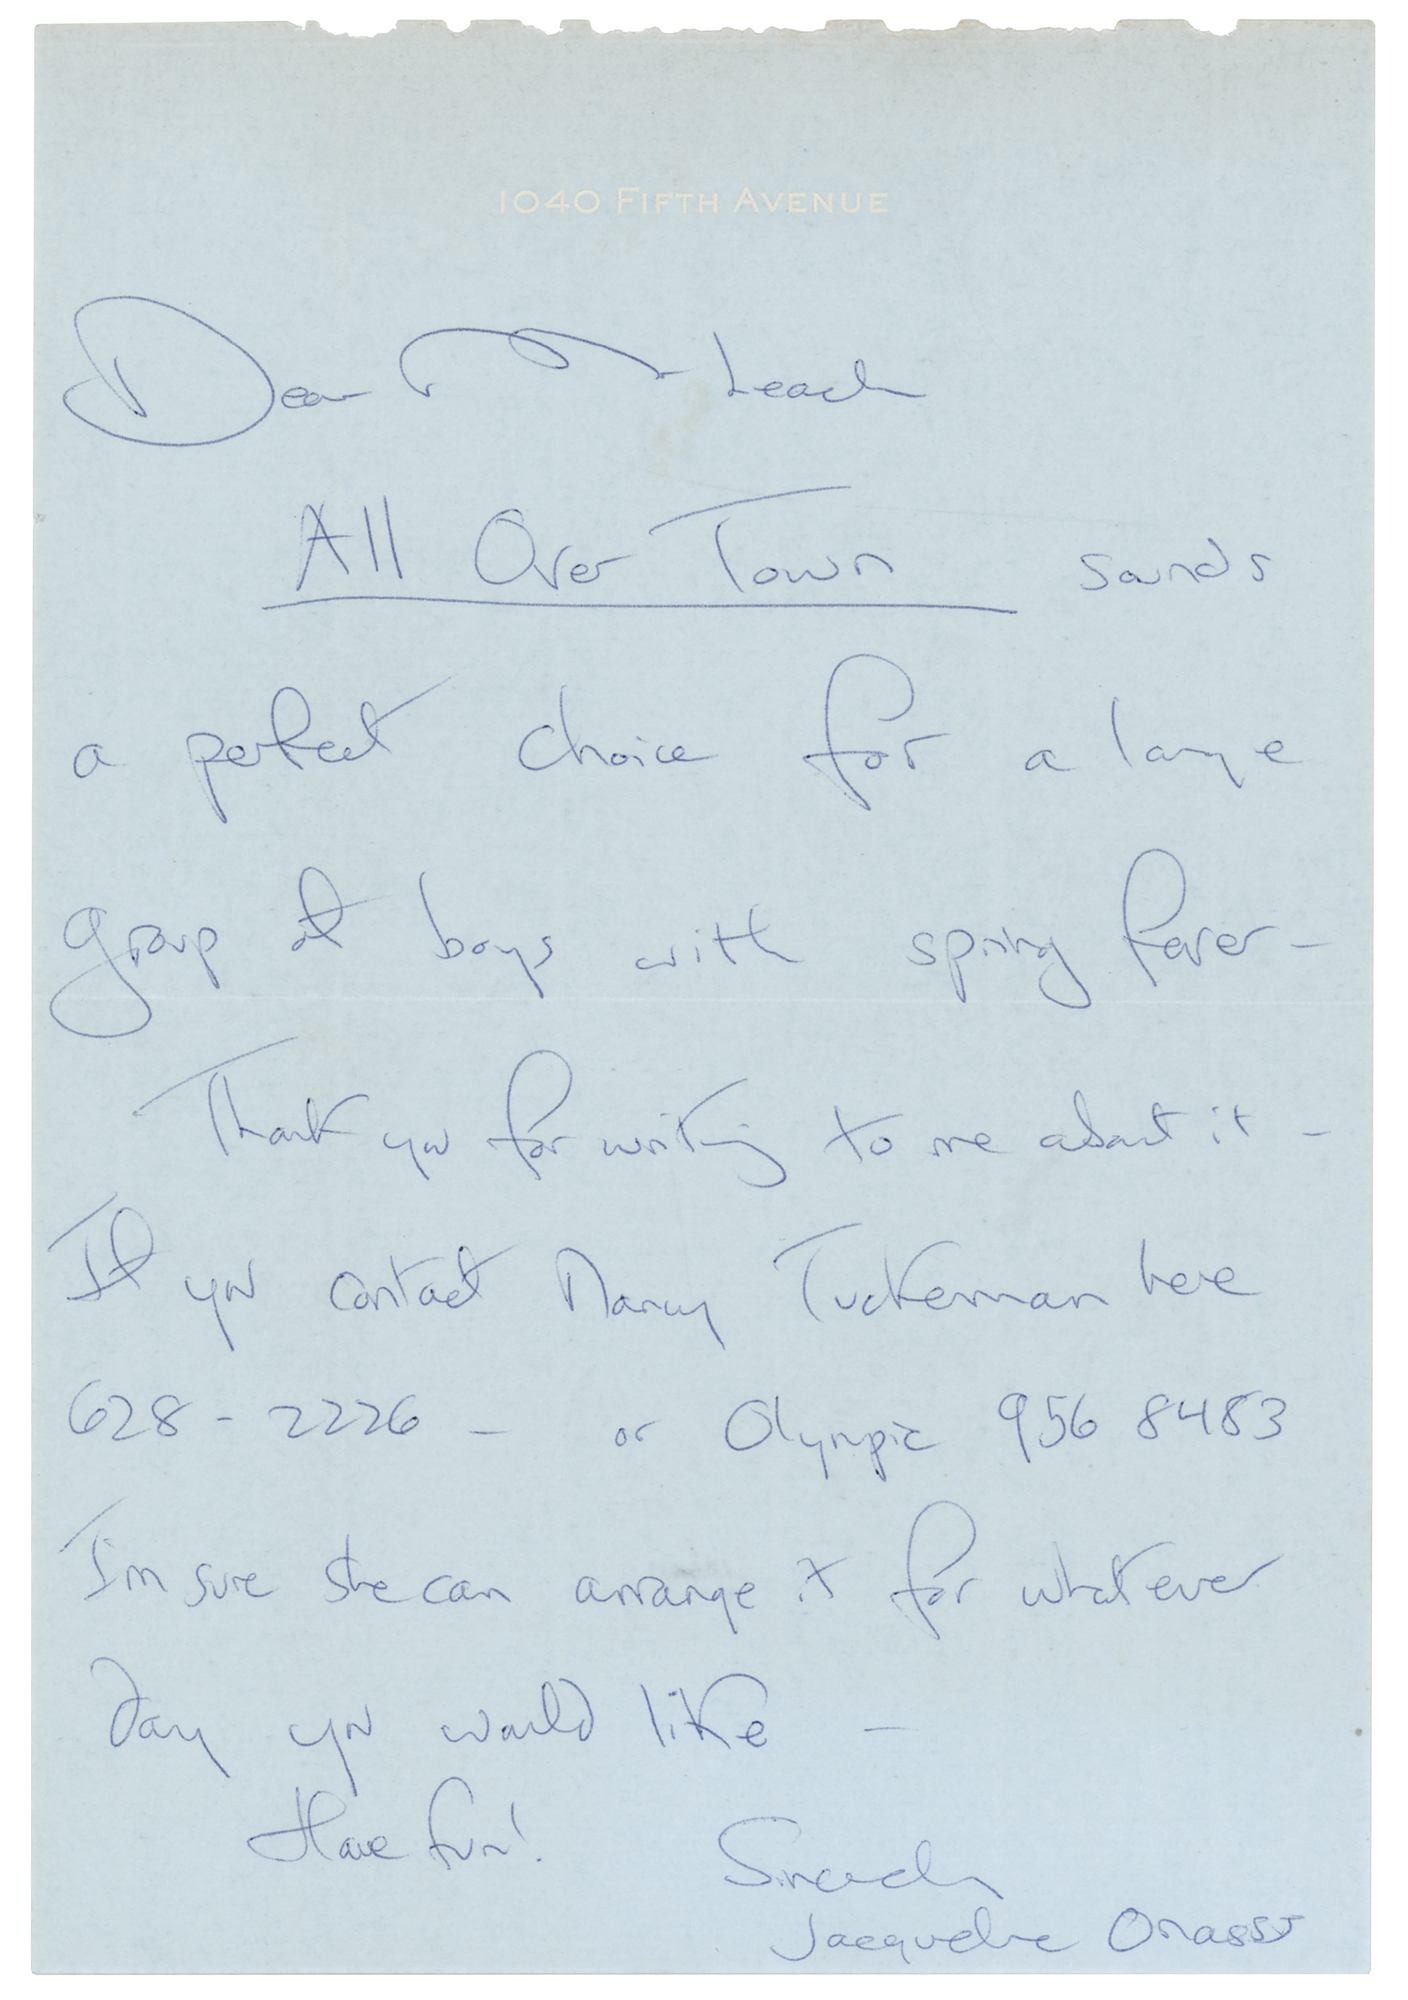 1040 FIFTH AVENUE
Dear Mr Leach
All Over Town sounds
a perfect choice for a large
group of boys with spring fever -
Thank you for writing to me about it -
If you contact Nancy Tuckerman here
628-2226 - or Olympic 956 8483
I'm sure she can arrange it for whatever
day you would like -
Have fun!
Sincerely
Jacqueline Onassis